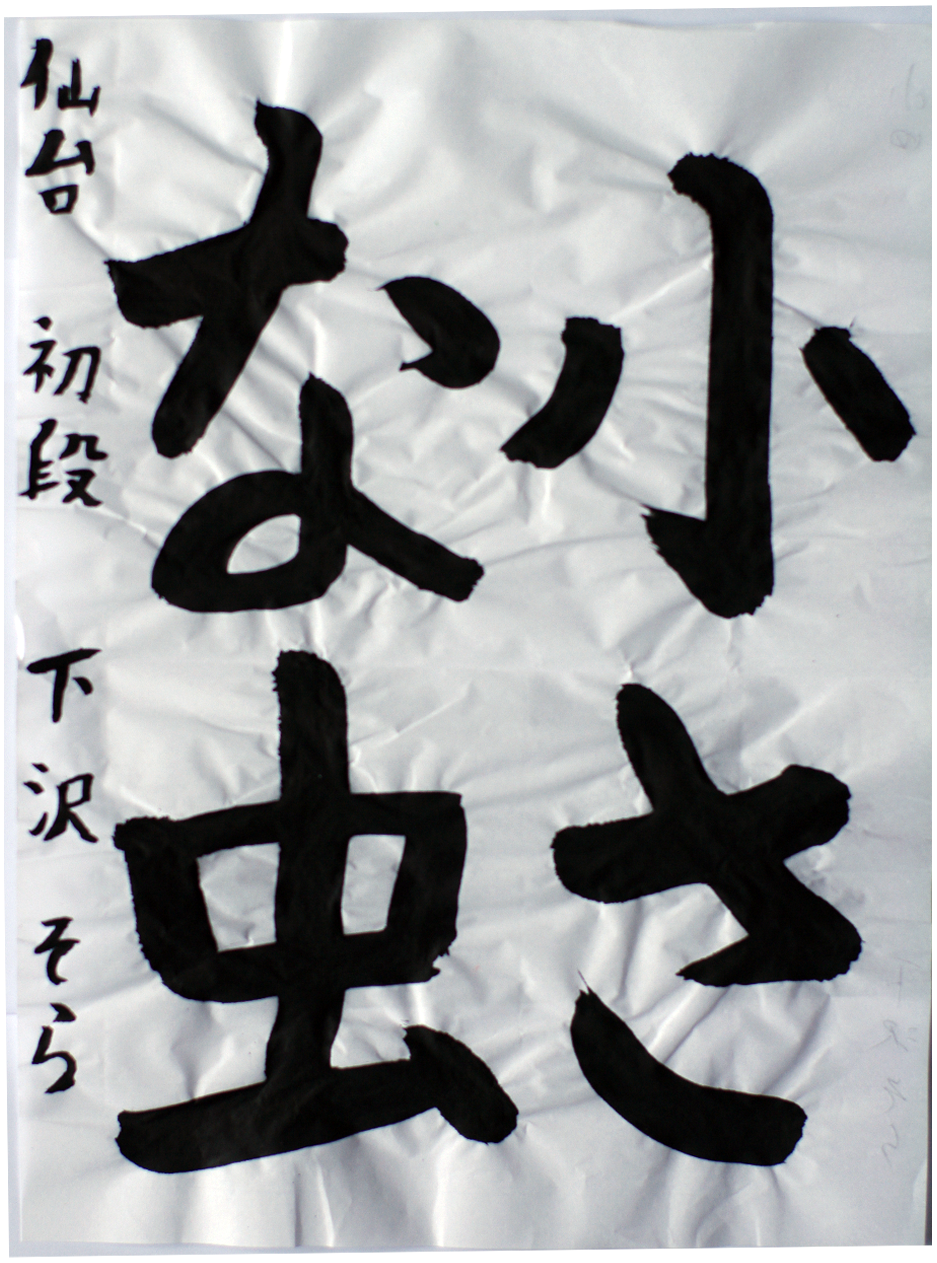 小さ
な虫
仙台 初段 下沢 そら